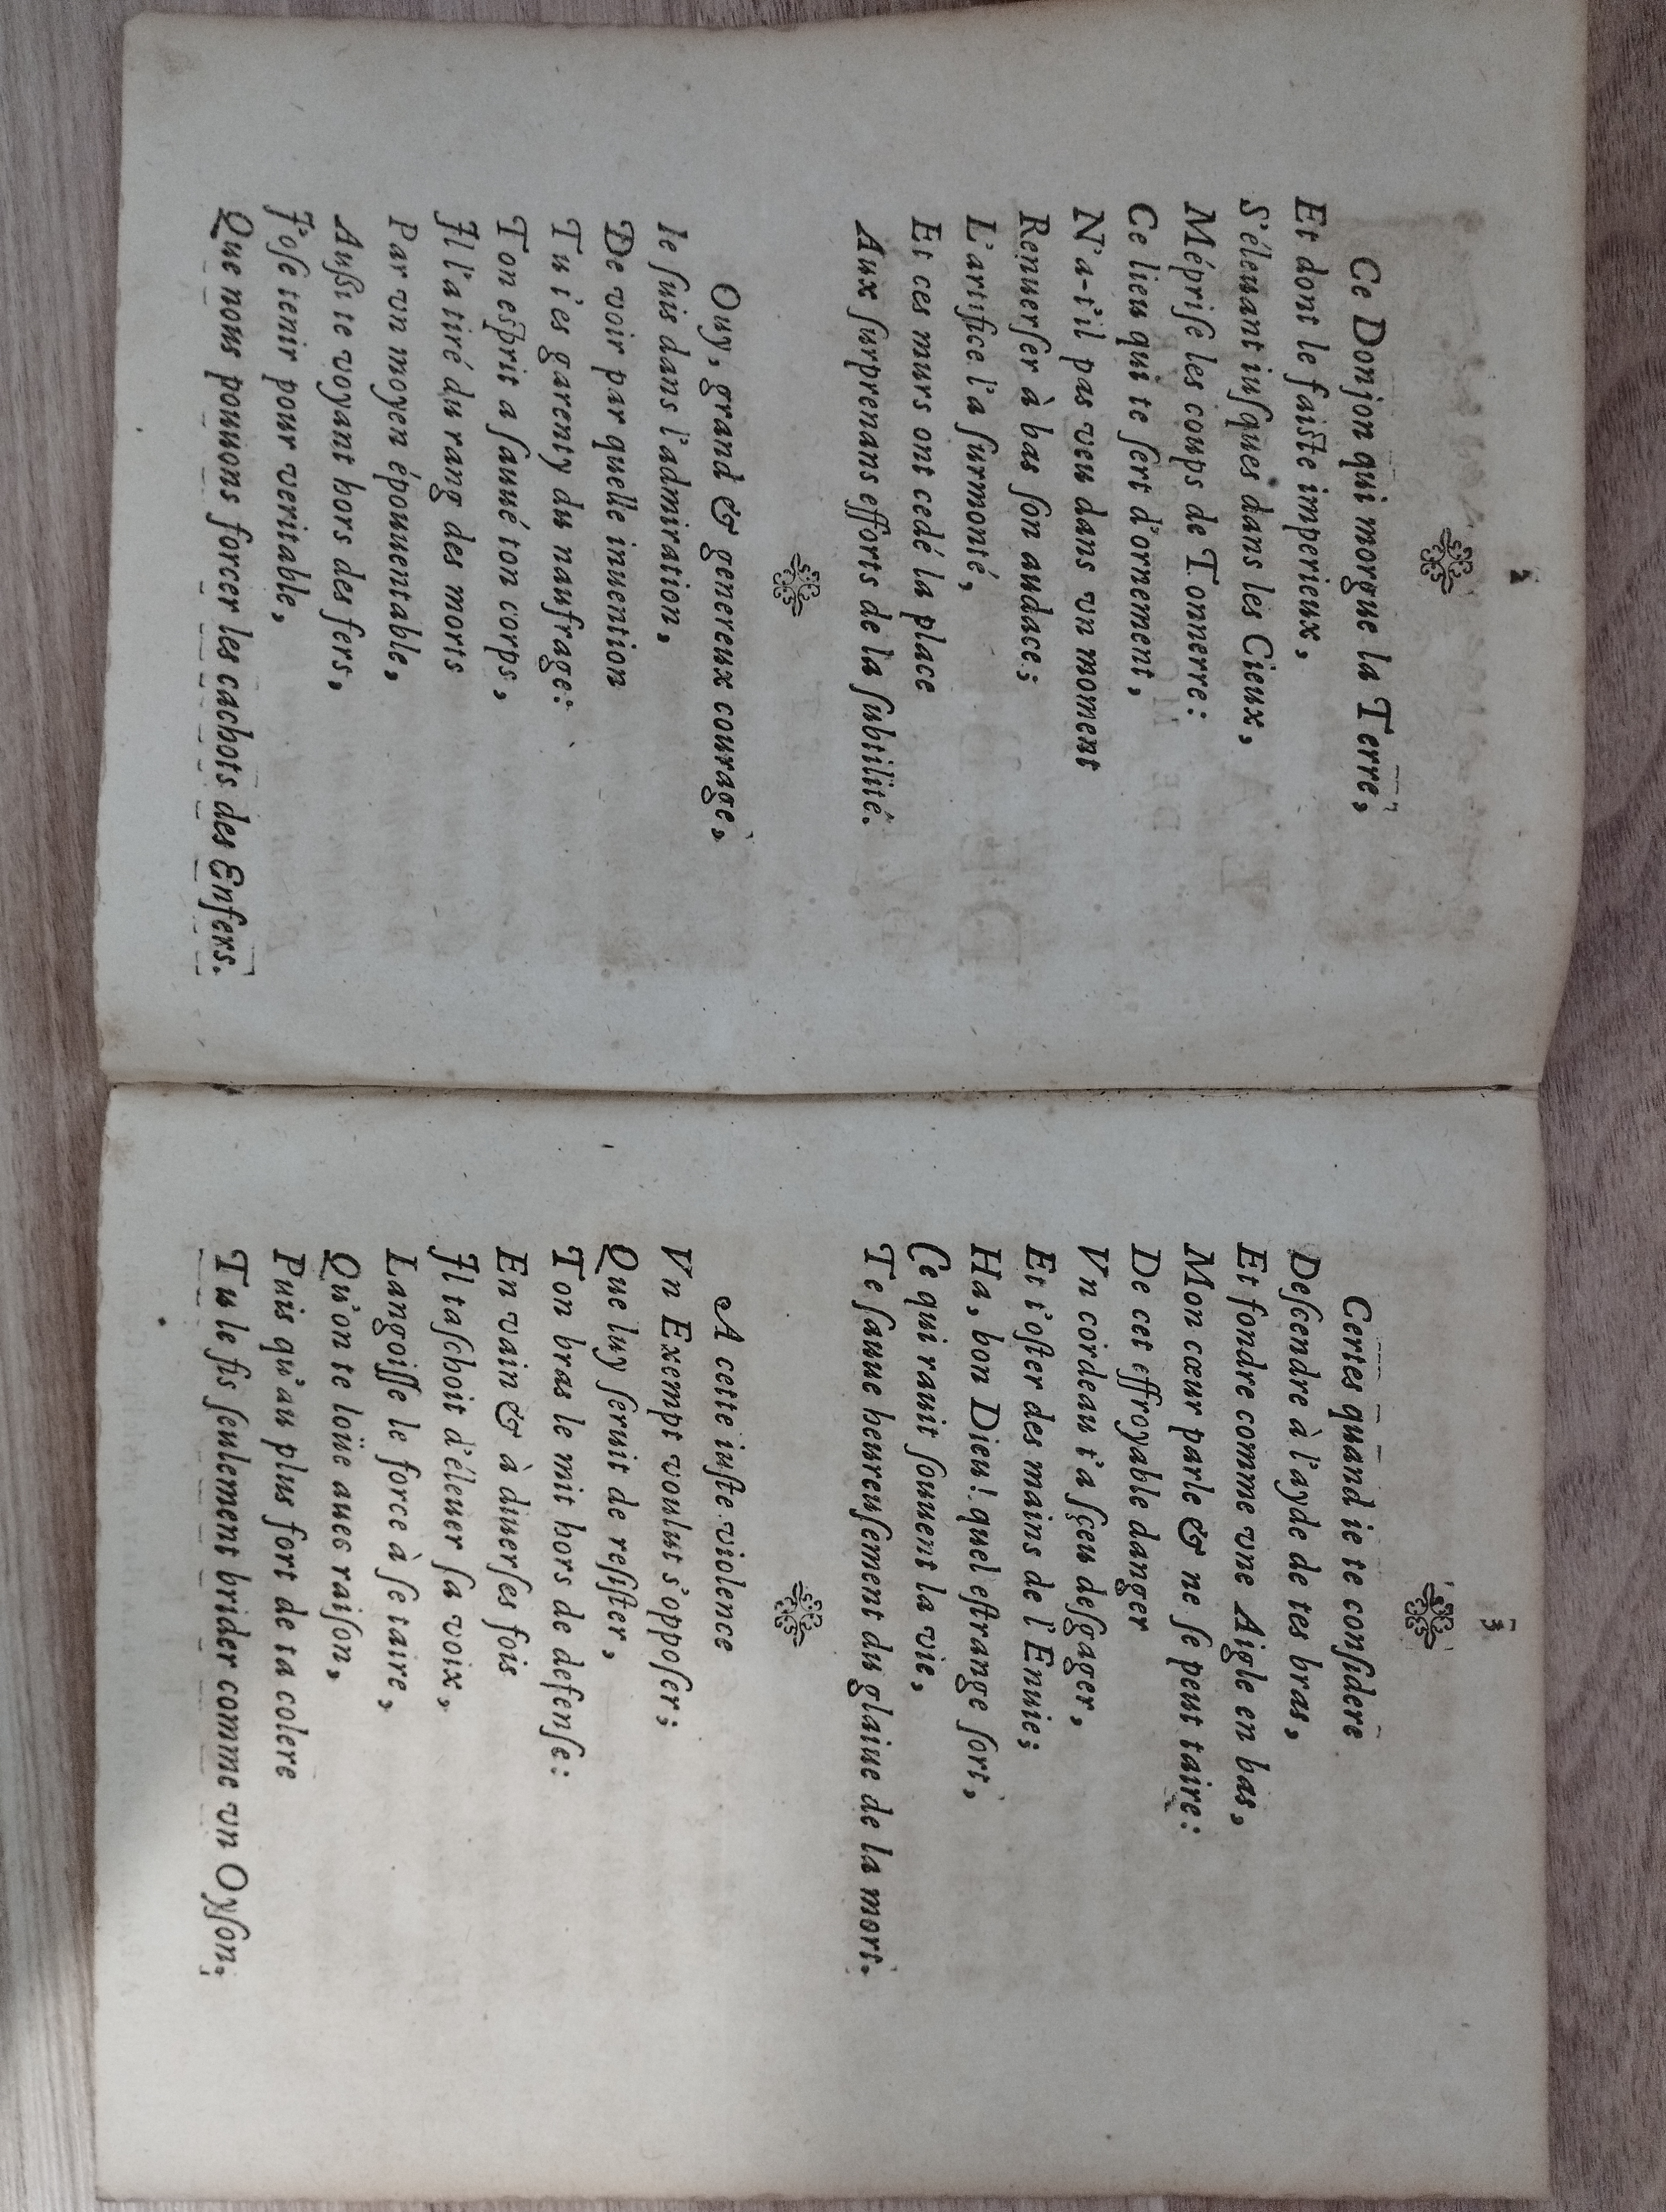 2
Ce Donjon qui morgue la Terre,
Et dont le faiſte imperieux,
S'éleuant iuſques dans les Cieux,
Mépriſe les coups de Tonnerre:
Ce lieu qui te ſert d'ornement,
N'a-t'il pas veu dans vn moment
Renuerſer à bas ſon audace;
L'artifice l'a ſurmonté,
Et ces murs ont cedé la place
Aux ſurprenans efforts de la ſubtilité.
Ouy, grand & genereux courage,
Ie ſuis dans l'admiration,
De voir par quelle inuention
Tu t'es garenty du naufrage:
Ton eſprit a ſauué ton corps,
Il l'a tiré du rang des morts
Par vn moyen épouuentable,
Außi te voyant hors des fers,
J'oſe tenir pour veritable,
Que nous pouuons forcer les cachots des Enfers.
3
Certes quand ie te conſidere
Deſcendre à l'ayde de tes bras,
Et fondre comme vne Aigle en bas,
Mon cœur parle & ne ſe peut taire:
De cet effroyable danger
Vn cordeau t'a ſçeu deſgager,
Et t'oſter des mains de l'Enuie;
Ha, bon Dieu! quel eſtrange ſort,
Ce qui rauit ſouuent la vie,
Te ſauue heureuſement du glaiue de la mort.
A cette iuſte violence
Vn Exempt voulut s'oppoſer;
Que luy ſeruit de reſiſter,
Ton bras le mit hors de defenſe:
En vain & à diuerſes fois
Il taſchoit d'éleuer ſa voix,
Langoiſſe le force à ſe taire,
Qu'on te loüe auec raiſon,
Puis qu'au plus fort de ta colere
Tu le fis ſeulement brider comme vn Oyſon.